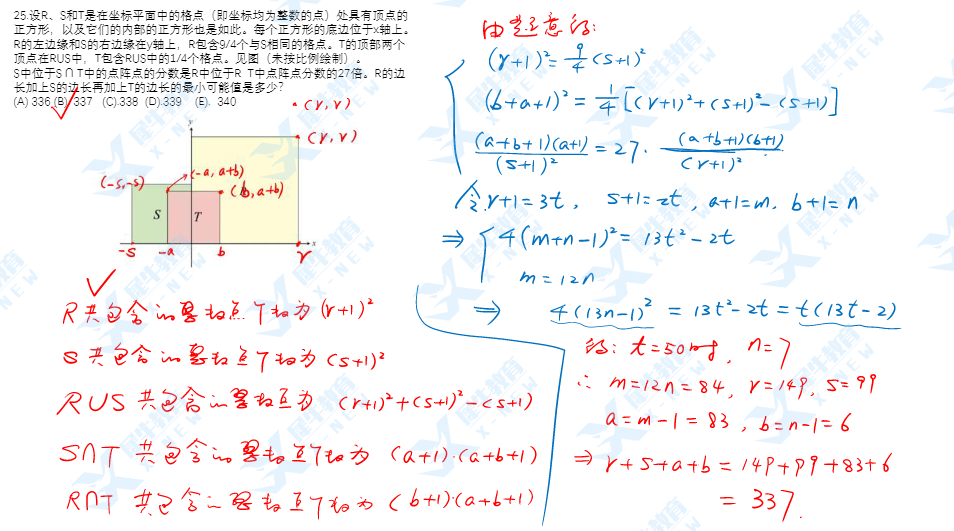 25.设R、S和T是在坐标平面中的格点（即坐标均为整数的点）处具有顶点的
正方形，以及它们的内部的正方形也是如此。每个正方形的底边位于x轴上。
R的左边缘和S的右边缘在y轴上，R包含9/4个与S相同的格点。T的顶部两个
顶点在RUS中，T包含RUS中的1/4个格点。见图（未按比例绘制）。
S中位于S∩T中的点阵点的分数是R中位于R T中点阵点分数的27倍。R的边
长加上S的边长再加上T的边长的最小可能值是多少?
(A) 336 (B) 337 (C).338 (D).339 (E). 340
(r, r)
y
(r, r)
(-s,-s)
(-a, a+b)
(b, a+b)
S
T
x
-s
-a
b
r
R共包含的整数点个数为(r+1)²
S 共包含的整数点个数为(s+1)²
RUS 共包含的整数点为 (r+1)²+(s+1)²-(s+1)
S∩T 共包含的整数点个数为 (a+1)·(a+b+1)
R∩T 共包含的整数点个数为 (b+1)(a+b+1)
由题意的:
(r+1)²=9/4(s+1)²
(b+a+1)²=1/4[(r+1)²+(s+1)²-(s+1)]
(a+b+1)(a+1)/(s+1)²=27·(a+b+1)(b+1)/(r+1)²
令r+1=3t, s+1=2t, a+1=m, b+1=n
⇒ 4(m+n-1)²=13t²-2t
m=12n
⇒ 4(13n-1)²=13t²-2t=t(13t-2)
的: t=50时, n=7
∴ m=12n=84, r=149, s=99
a=m-1=83, b=n-1=6
⇒ r+s+a+b=149+99+83+6
=337.
犀牛教育
X-NEW